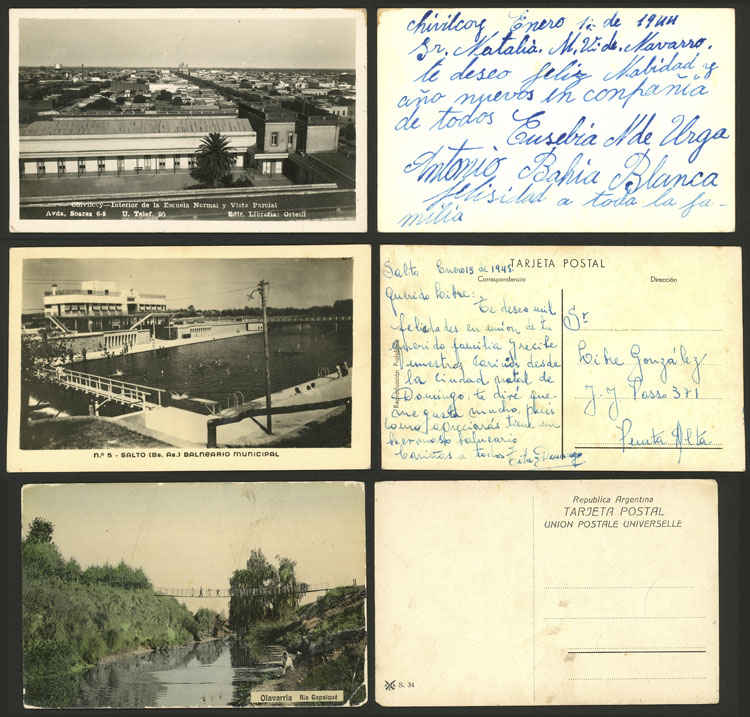 Chivilcoy—Interior de la Escuela Normal y Vista Parcial
Avda. Soarez 6-8 U. Telef. 95 Edic. Libreria: Ortelli
Chivilcoy Enero 1º de 1944
Sr. Natalia. M. Vª. de. Navarro.
te deseo feliz Nabidad y
año nuevos en conpañia
de todos Eusebia N de Urga
Antonio Bahia Blanca
felisidad a toda la fa-
milia
N.º 5 - SALTO (Bs. As.) BALNEARIO MUNICIPAL
TARJETA POSTAL
Correspondencia
Dirección
Salto Enero 15 de 1948.
Querido Libre:
Te deseo mil
felicidades en union de tu
querida familia y recibe
nuestros cariños desde
la ciudad natal de
Domingo, te diré que
me gusta mucho, pues
como apreciarás tiene un
hermoso balneario
Cariños a todos Tita y Domingo
Reproducción Prohibida
Sr
Libre González
J. J. Passo 371
Punta Alta
Olavarria Rio Tapalqué
Republica Argentina
TARJETA POSTAL
UNION POSTALE UNIVERSELLE
S. 34